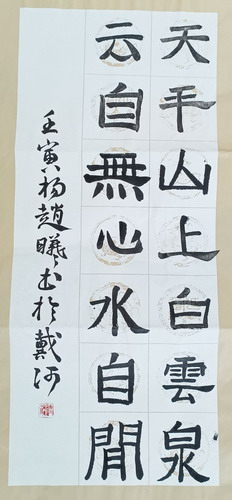 天平山上白雲泉
云自無心水自閒
壬寅杨趙曦书於戴河